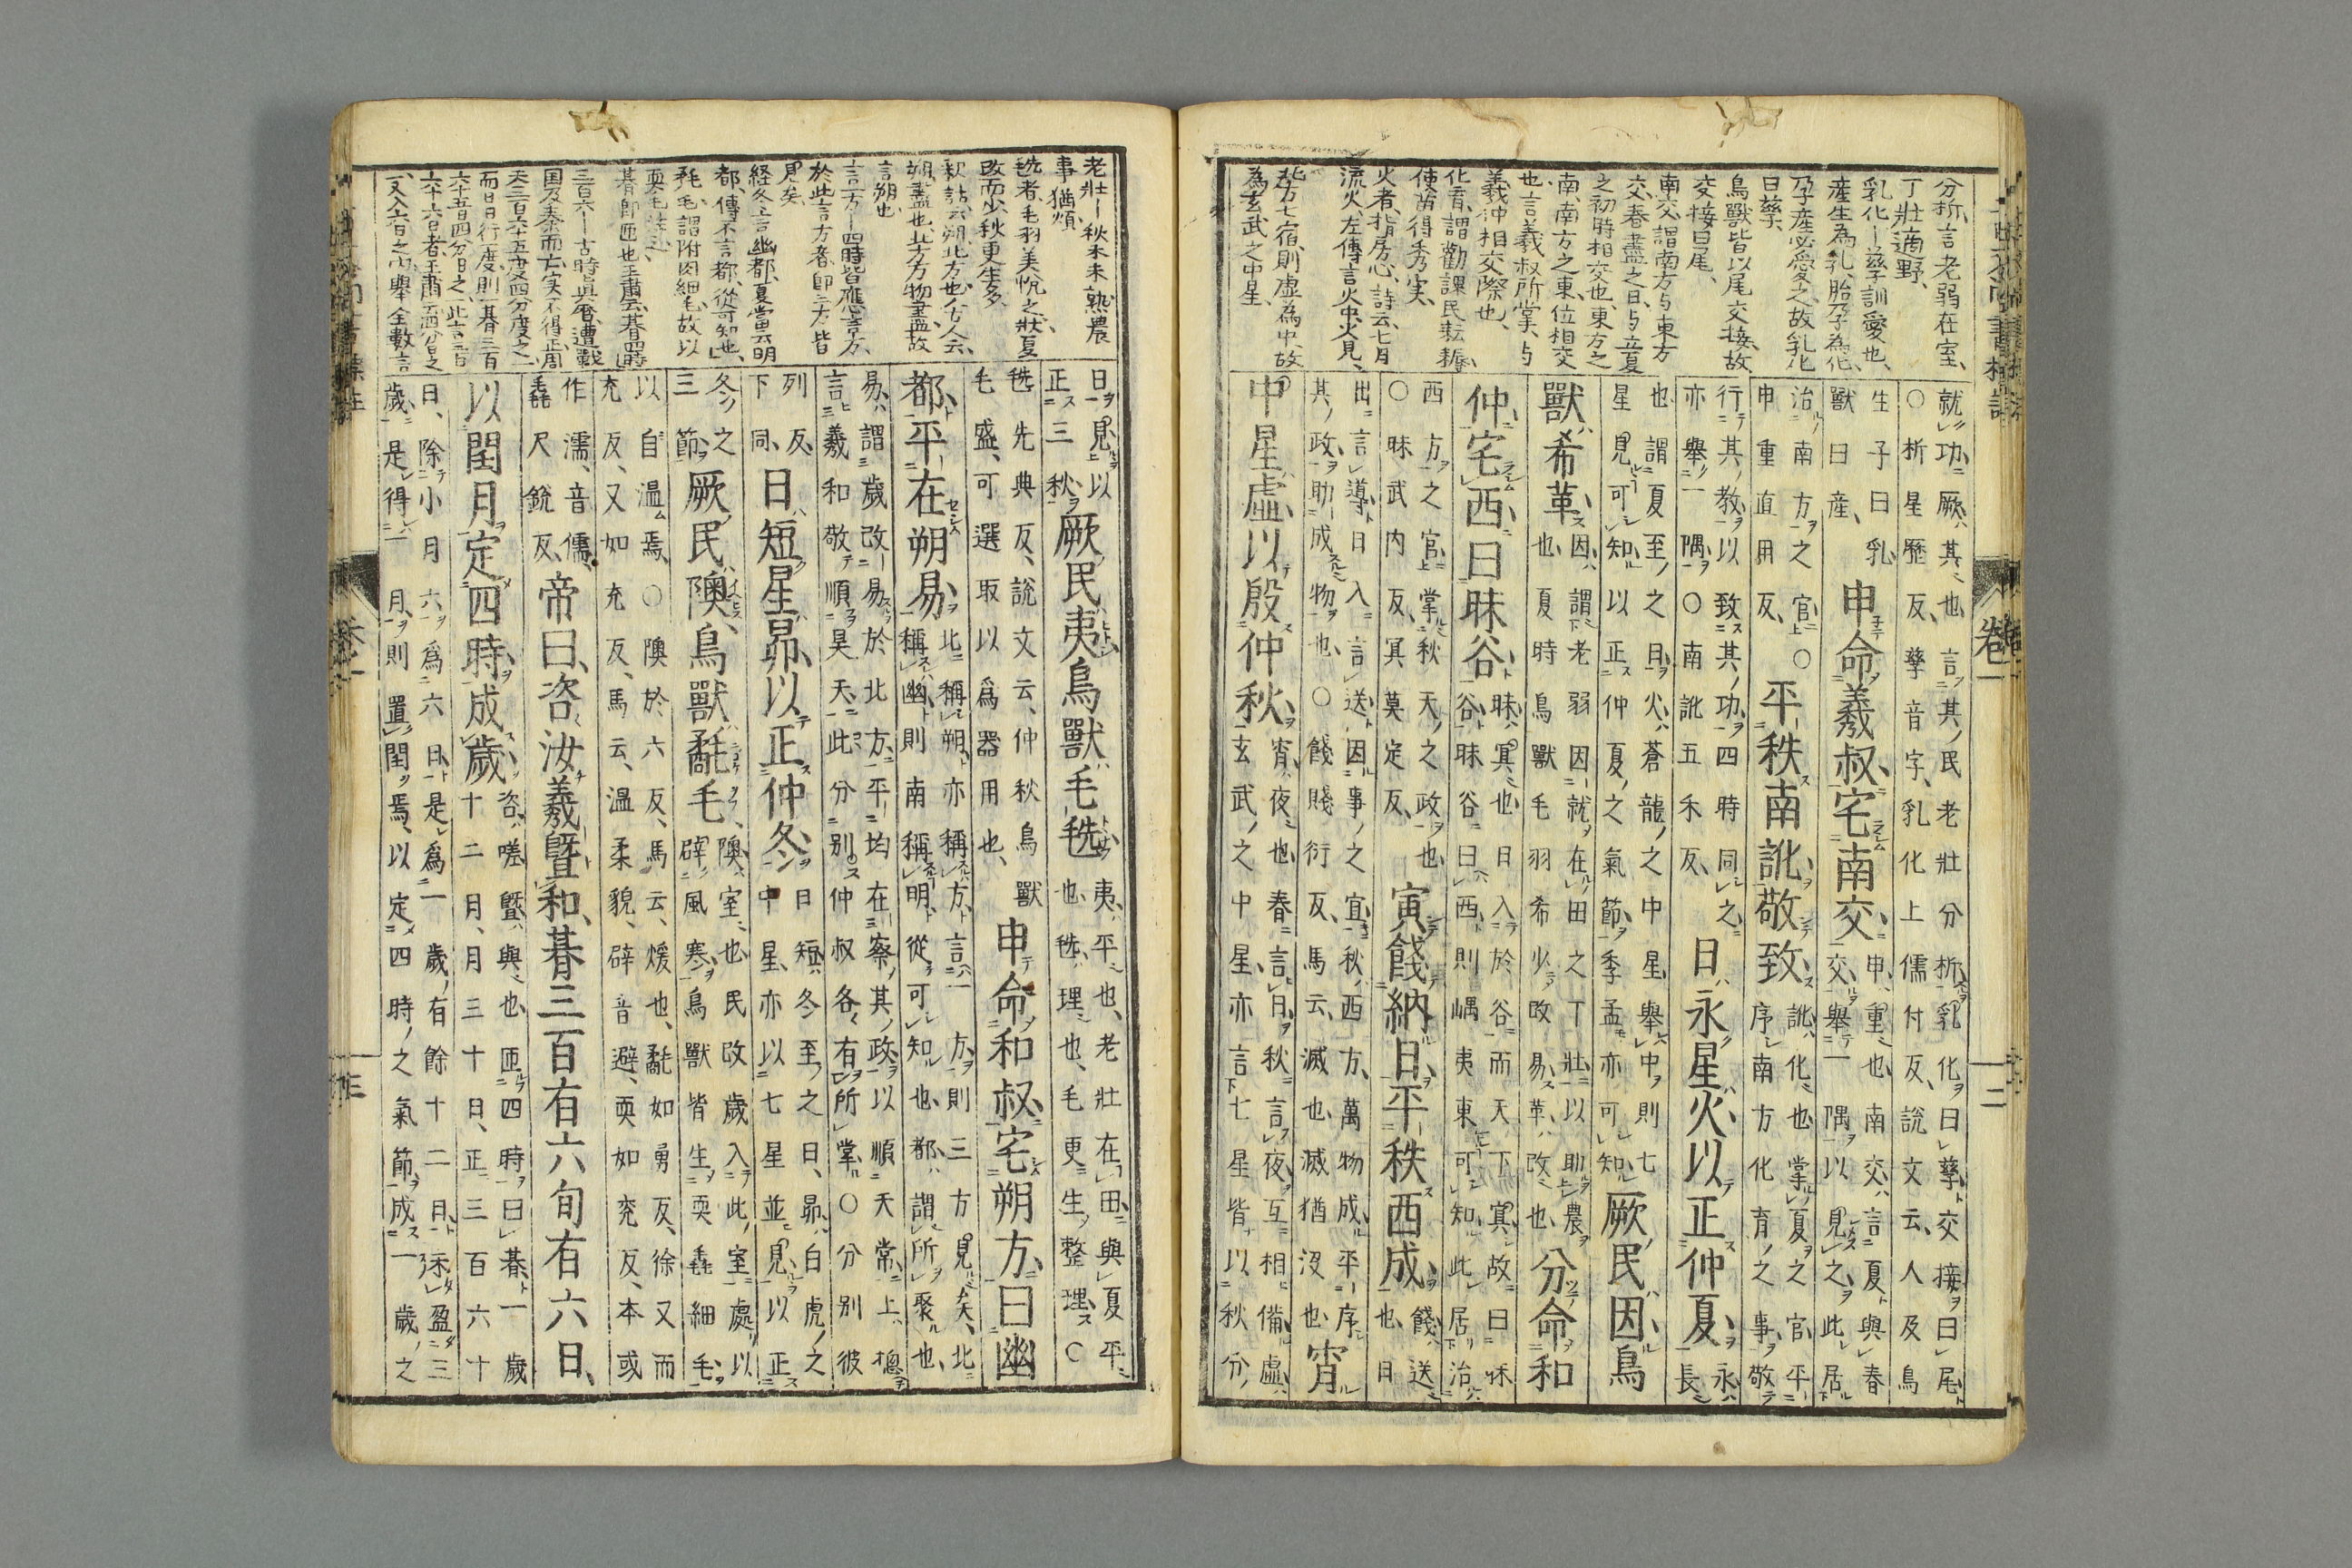 分析、言老弱在室、
丁壯適野、
乳化ー孳字訓愛也、
產生為乳、胎孕為化、
孕產必愛之、故乳化
曰孳、
鳥獸皆以尾交接、故
交接曰尾、
南交、謂南方与東方
交、春盡之日、与立夏
之初時相交也、東方之
南、南方之東、位相交
也、言羲叔所掌、与
羲仲相交際也、
化育、謂勸課民耘耨、
使苗得秀实、
火者、指房心、詩云、七月
流火、左傳言火中、火見、
方七宿、則虛為中、故
為玄武之中星、
就功厥其也言其民老壯分析乳化曰孳交接曰尾
○析星歷反孳音字乳化上儒付反說文云人及鳥
生子曰乳
獸曰產
申命羲叔宅南交
申重也南交言夏與春
交舉一隅以見之此居
治南方之官○
申重直用反
平秩南訛敬致
訛化也掌夏之官平
序南方化育之事敬
行其教以致其功四時同之
亦舉一隅○南訛五禾反
日永星火以正仲夏
永長
也謂夏至之日火蒼龍之中星舉中則七
星見可知以正仲夏之氣節季孟亦可知
厥民因鳥
獸希革
因謂老弱因就在田之丁壯以助農
也夏時鳥獸毛羽希少改易革改也
分命和
仲宅西曰昧谷
昧冥也日入於谷而天下冥故曰昧
谷昧谷曰西則嵎夷東可知此居治
西方之官掌秋天之政也
○昧武內反冥莫定反
寅餞納日平秩西成
餞送
也日
出言導日入言送因事之宜秋西方萬物成平序
其政助成物也○餞賤衍反馬云滅也滅猶沒也
宵
中星虛以殷仲秋
宵夜也春言日秋言夜互相備虛
玄武之中星亦言七星皆以秋分
卷一
二
老壯ー秋未熟農
事猶煩
毨者、毛羽美悅之狀、夏
改而少、秋更生多、
言朔也
言一方ー四時皆應言方、
於此言方者、即三方皆
見矣、
経冬之言幽都、夏當云明
都、傳不言都、從可知也、
氄毛、謂附肉細毛、故以
朞即匝也、王肅云、朞四時
国及秦而亡、实不得正、周
天三百六十五度四分度之一、
而日日行一度、則一朞三百
六十五日四分日之一、此言三百
六十六日者、王肅云、四分日之
一、又入六日之內、舉全數言
日見以
正三秋
厥民夷鳥獸毛毨
夷平也老壯在田與夏平
也毨理也毛更生整理○
毨先典反說文云仲秋鳥獸
毛盛可選取以爲器用也
申命和叔宅朔方曰幽
都平在朔易
北稱朔亦稱方言一方則三方見矣北
稱幽則南稱明從可知也都謂所聚也
易謂歲改易於北方平均在察其政以順天常上揔
言羲和敬順昊天此分別仲叔各有所掌○分別彼
列反
下同
日短星昴以正仲冬
日短冬至之日昴白虎之
中星亦以七星並見以正
冬之
三節
厥民隩鳥獸氄毛
隩室也民改歲入此室處以
辟風寒鳥獸皆生耎毳細毛
以自温焉○隩於六反馬云煖也氄如勇反徐又而
充反又如充反馬云温柔貌辟音避耎如兖反本或
作濡音儒
毳尺銳反
帝曰咨汝羲暨和朞三百有六旬有六日
以閏月定四時成歲
咨嗟暨與也匝四時曰朞一歲
十二月月三十日正三百六十
日除小月六爲六日是爲一歲有餘十二日未盈三
歲是得一月則置閏焉以定四時之氣節成一歲之